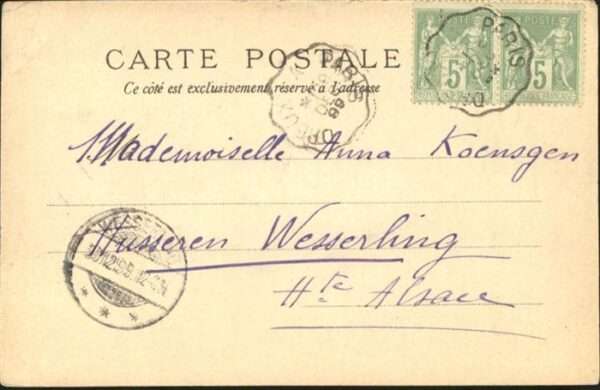 CARTE POSTALE
Ce côté est exclusivement réservé à l'adresse
POSTE POSTE
5 5
PARIS
PARIS
Mademoiselle Anna Koensgen
Husseren Wesserling
Hte Alsace